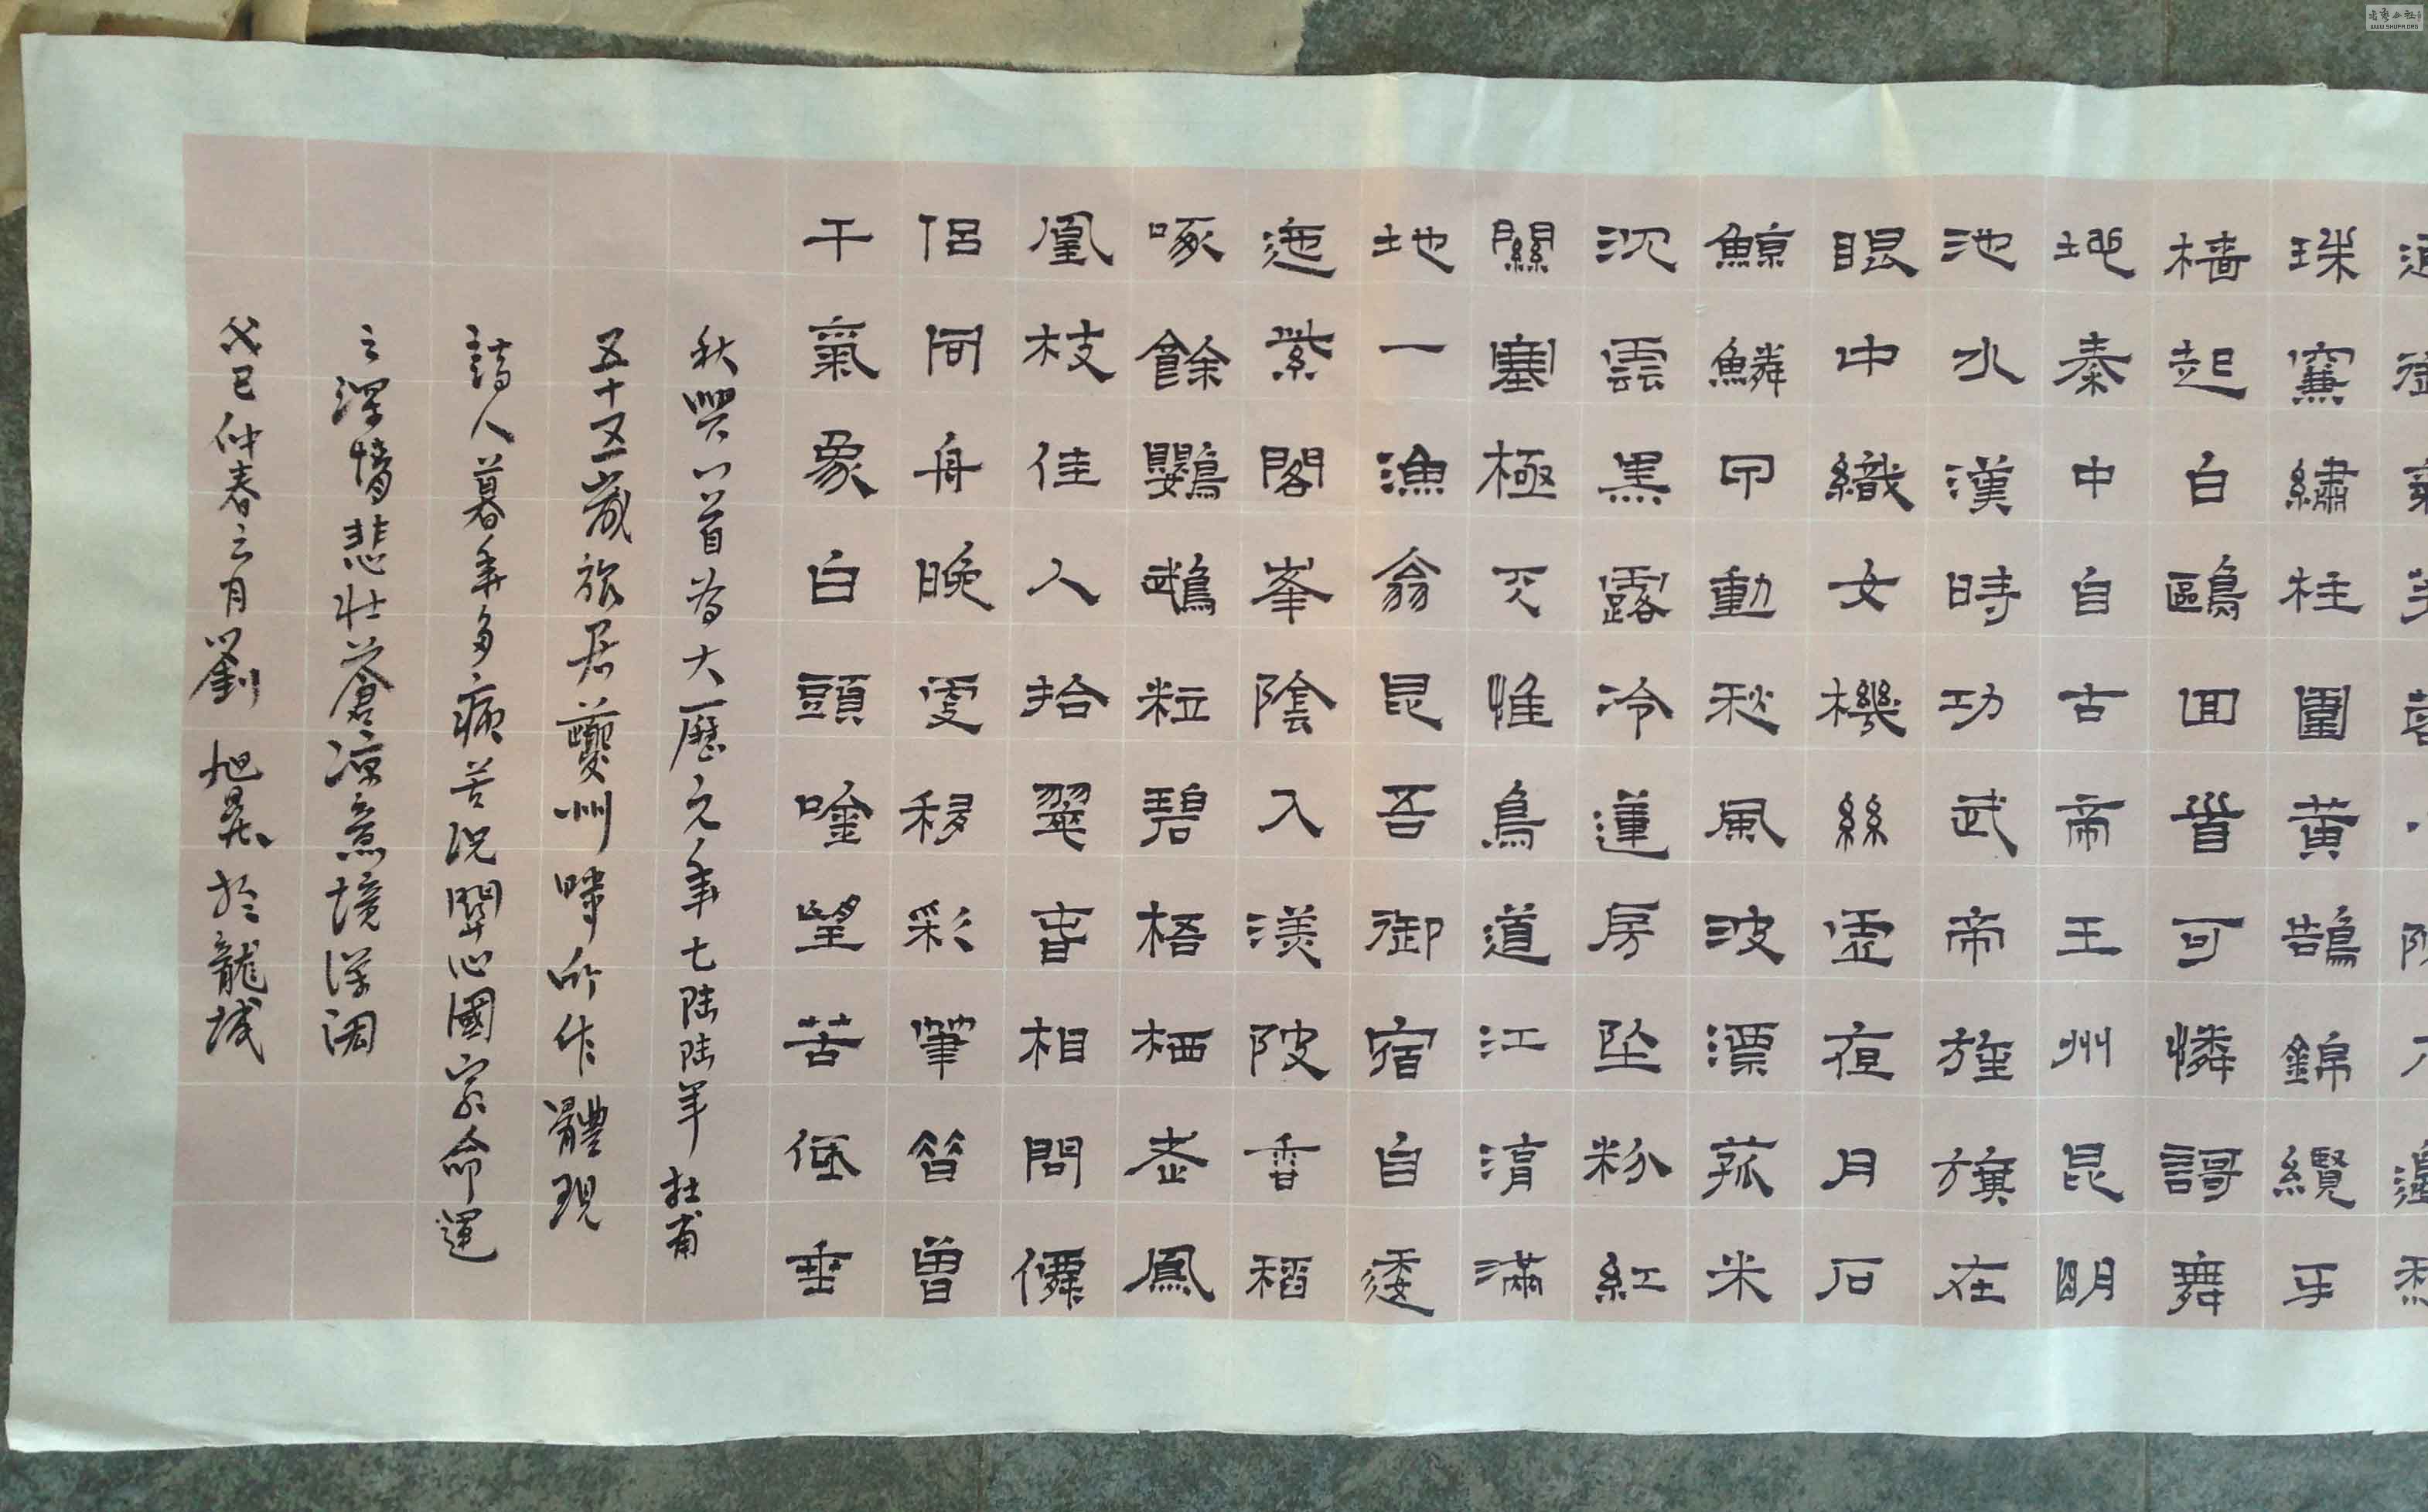 珠簾繡柱圍黃鵠錦纜牙
檣起白鷗囬首可憐謌舞
地秦中自古帝王州昆明
池水漢時功武帝旌旗在
眼中織女機絲虛夜月石
鯨鱗甲動秋風波漂菰米
沉雲黑露冷蓮房坠粉紅
關塞極天惟鳥道江湖滿
地一漁翁昆吾御宿自逶
迤紫閣峯陰入渼陂香稻
啄餘鸚鵡粒碧梧栖老鳳
凰枝佳人拾翠春相問僊
侶同舟晚更移彩筆昔曾
干氣象白頭唫望苦低垂
秋興八首為大曆元年七陸陸年杜甫
五十五歲旅居夔州時所作體現
詩人暮年多病苦況關心國家命運
之深情悲壯蒼涼意境深闊
癸巳仲春之月劉旭於龍城
WWW.SHUFA.ORG